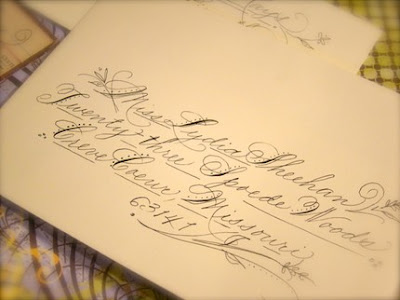 Miss Lydia Sheehan
Twenty-three Spoede Woods
Creve Coeur, Missouri
63141